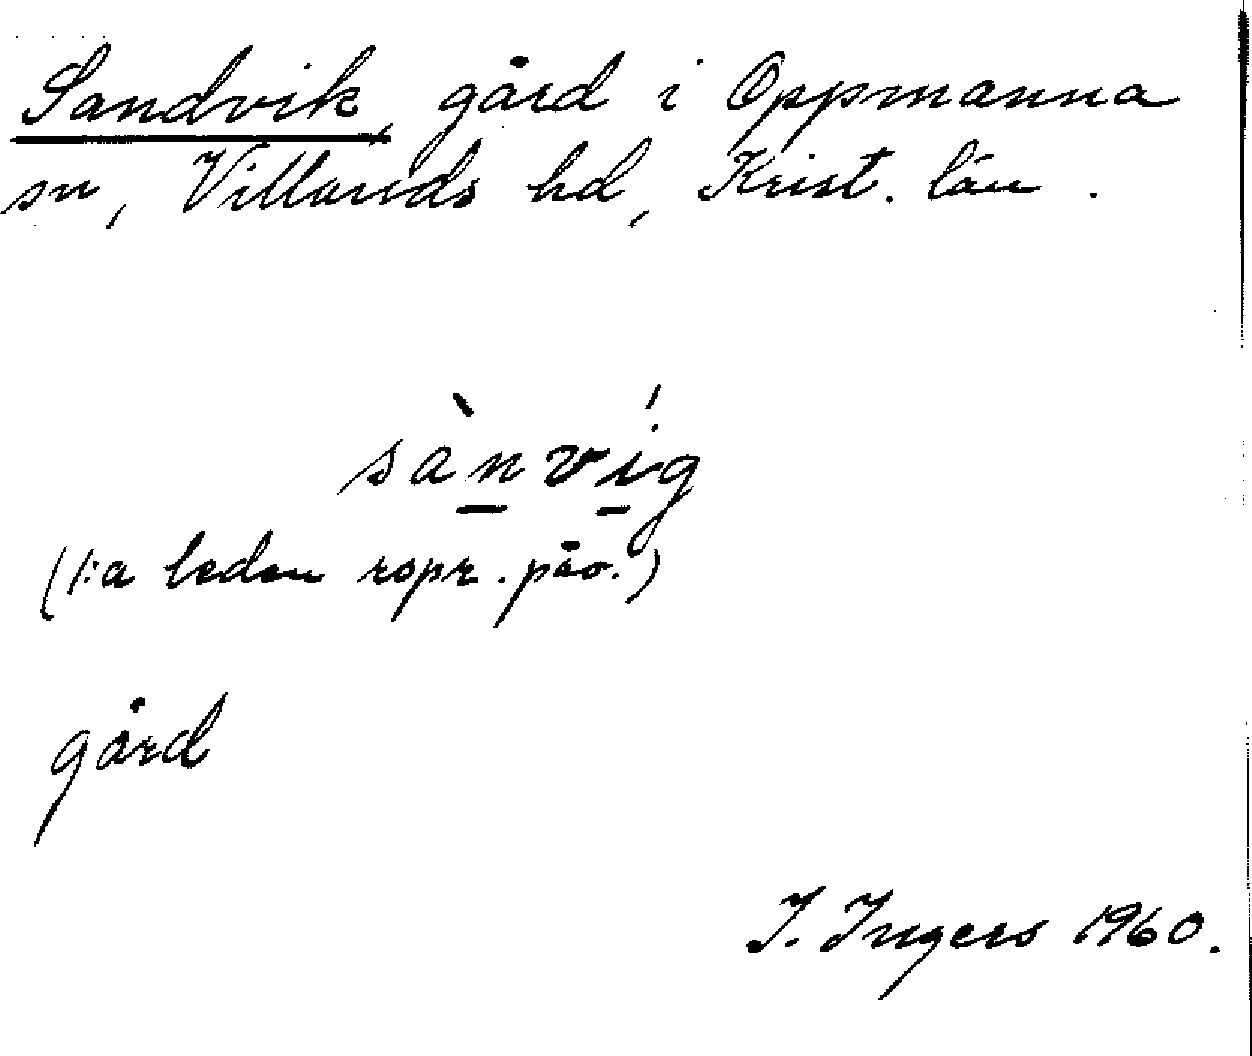 Sandvik, gård i Oppmanna
sn, Villands hd, Krist. län.
sànvíg
(1:a leden ropr. påo.)
gård
I. Ingers 1960.